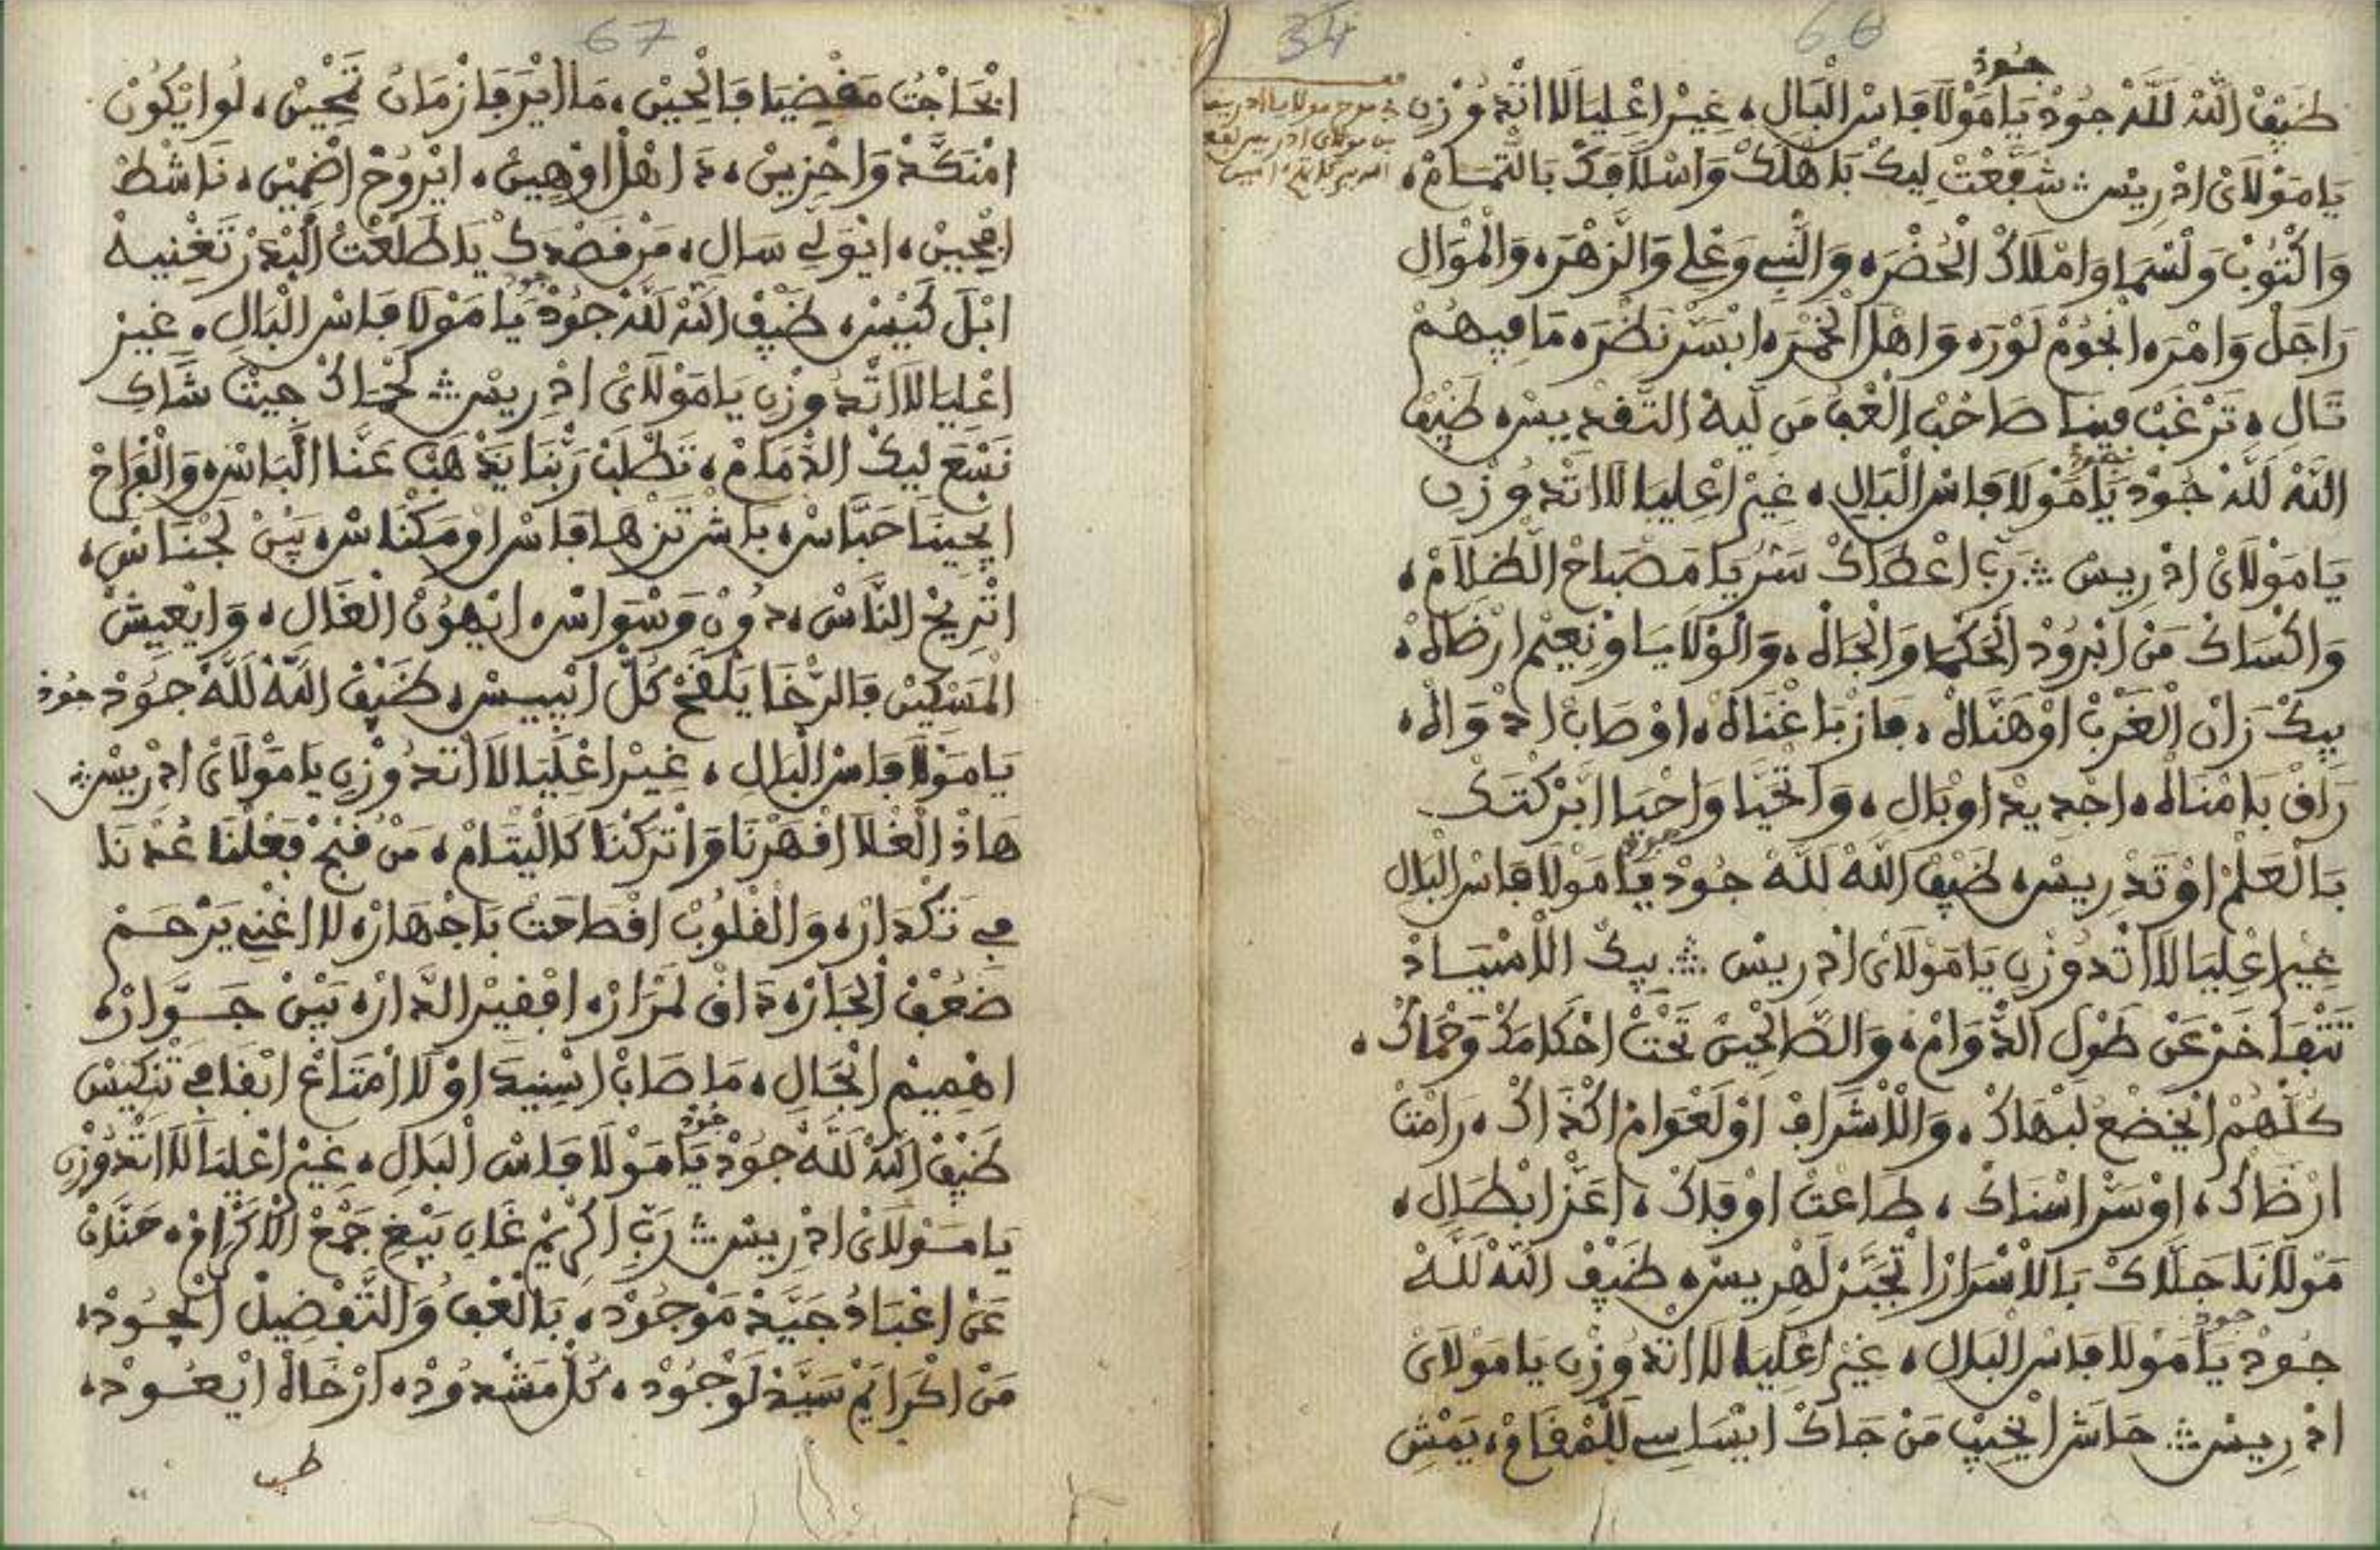 66
جود
ضيف الله لله جود يا مولا فاس البال، غير اعليا لا اتدوزن
34
في مدح مولانا ادريس
بن مولاي ادريس نفع
يا مولاي ادريس شفعت ليك باهلك واسلافك بالتمام،
واكتوب ولسما واملاك الخضره والنبي وعلي والزهره والموال
راجل وامره انجوم لوره واهل الخمره ابسر نظره ما فيهم
تال، ترغب فينا صاحب العفو من ليه التقديس، ضيف
الله لله جود يا مولا فاس البال، غير اعليا لا اتدوزن
جود
يا مولاي ادريس رب اعطاك سر يا مصباح الظلام،
واكساك من ابرود الحكما والجاه، والولايا ونعيم ارضاه،
بيك زان الغرب اوهناه، فاز باغناه، اوصاب ادواه،
راق بامناه، اجديد اوبال، واتحيا واحيا ابركتك
بالعلم اوتدريس، ضيف الله لله جود يا مولا فاس البال
جود
غير اعليا لا اتدوزن يا مولاي ادريس بيك الاسياد
تتفاخر عن طول الدوام، والصالحين تحت احكامك وحماك،
كلهم ايخضع لبهاك، والاشراف اولعوام اكذاك، رامت
ارضاك، اوسر اسناك، طاعت اوفاك، اعز ابطال،
مولانا حلاك بالاسرار اتجبر لهريس، ضيف الله لله
جود يا مولا فاس البال، غير اعليا لا اتدوزن يا مولاي
جود
ادريس حاشا ايخيب من جاك ايساسي للمقام، يمش
67
ابحاجت مقضيا فالحين، ما ايرفا زمان تحين، لو ايكون
امنكد واحزين، د اهل اوهين، ايروح اضمين، ناشط
افحين، ايولي سال، من قصدك يا طلعت البدر تغنيه
ابل كيس، ضيف الله لله جود يا مولا فاس البال، غير
جود
اعليا لا اتدوزن يا مولاي ادريس لحماك جيت شاك
نسع ليك الذمام، تطلب ربنا يذهب عنا الباس، والفراح
ايجينا حباس، باش تزها فاس اومكناس، بين لجناس،
اتريح الناس، دون وسواس، ايهون الغال، وايعيش
المسكين فالرخا يلقح كل ايبيس، ضيف الله لله جود جود
يا مولا فاس البال، غير اعليا لا اتدوزن يا مولاي ادريس
هاذ الغلا اقهرنا واتركنا كاليتام، من قبح فعلنا عدنا
في تكدار، والقلوب اقصاحت باجهار، لا اغني يرحم
ضعف الجار، داق لمرار، افقير الدار، بين جوار،
اهميم الحال، ما صاب اسنيد او لا امتاع ابقا في تنكيس
ضيف الله لله جود يا مولا فاس البال، غير اعليا لا اتدوزن
جود
يا مولاي ادريس رب اكريم غان يبغ جمع الاكرام، حنان
عن اعباد جيد موجود، بالعفو والتفضيل ايجود،
من اكرايم سيد لوجود، كل مشدود، ارخاه ايعود،